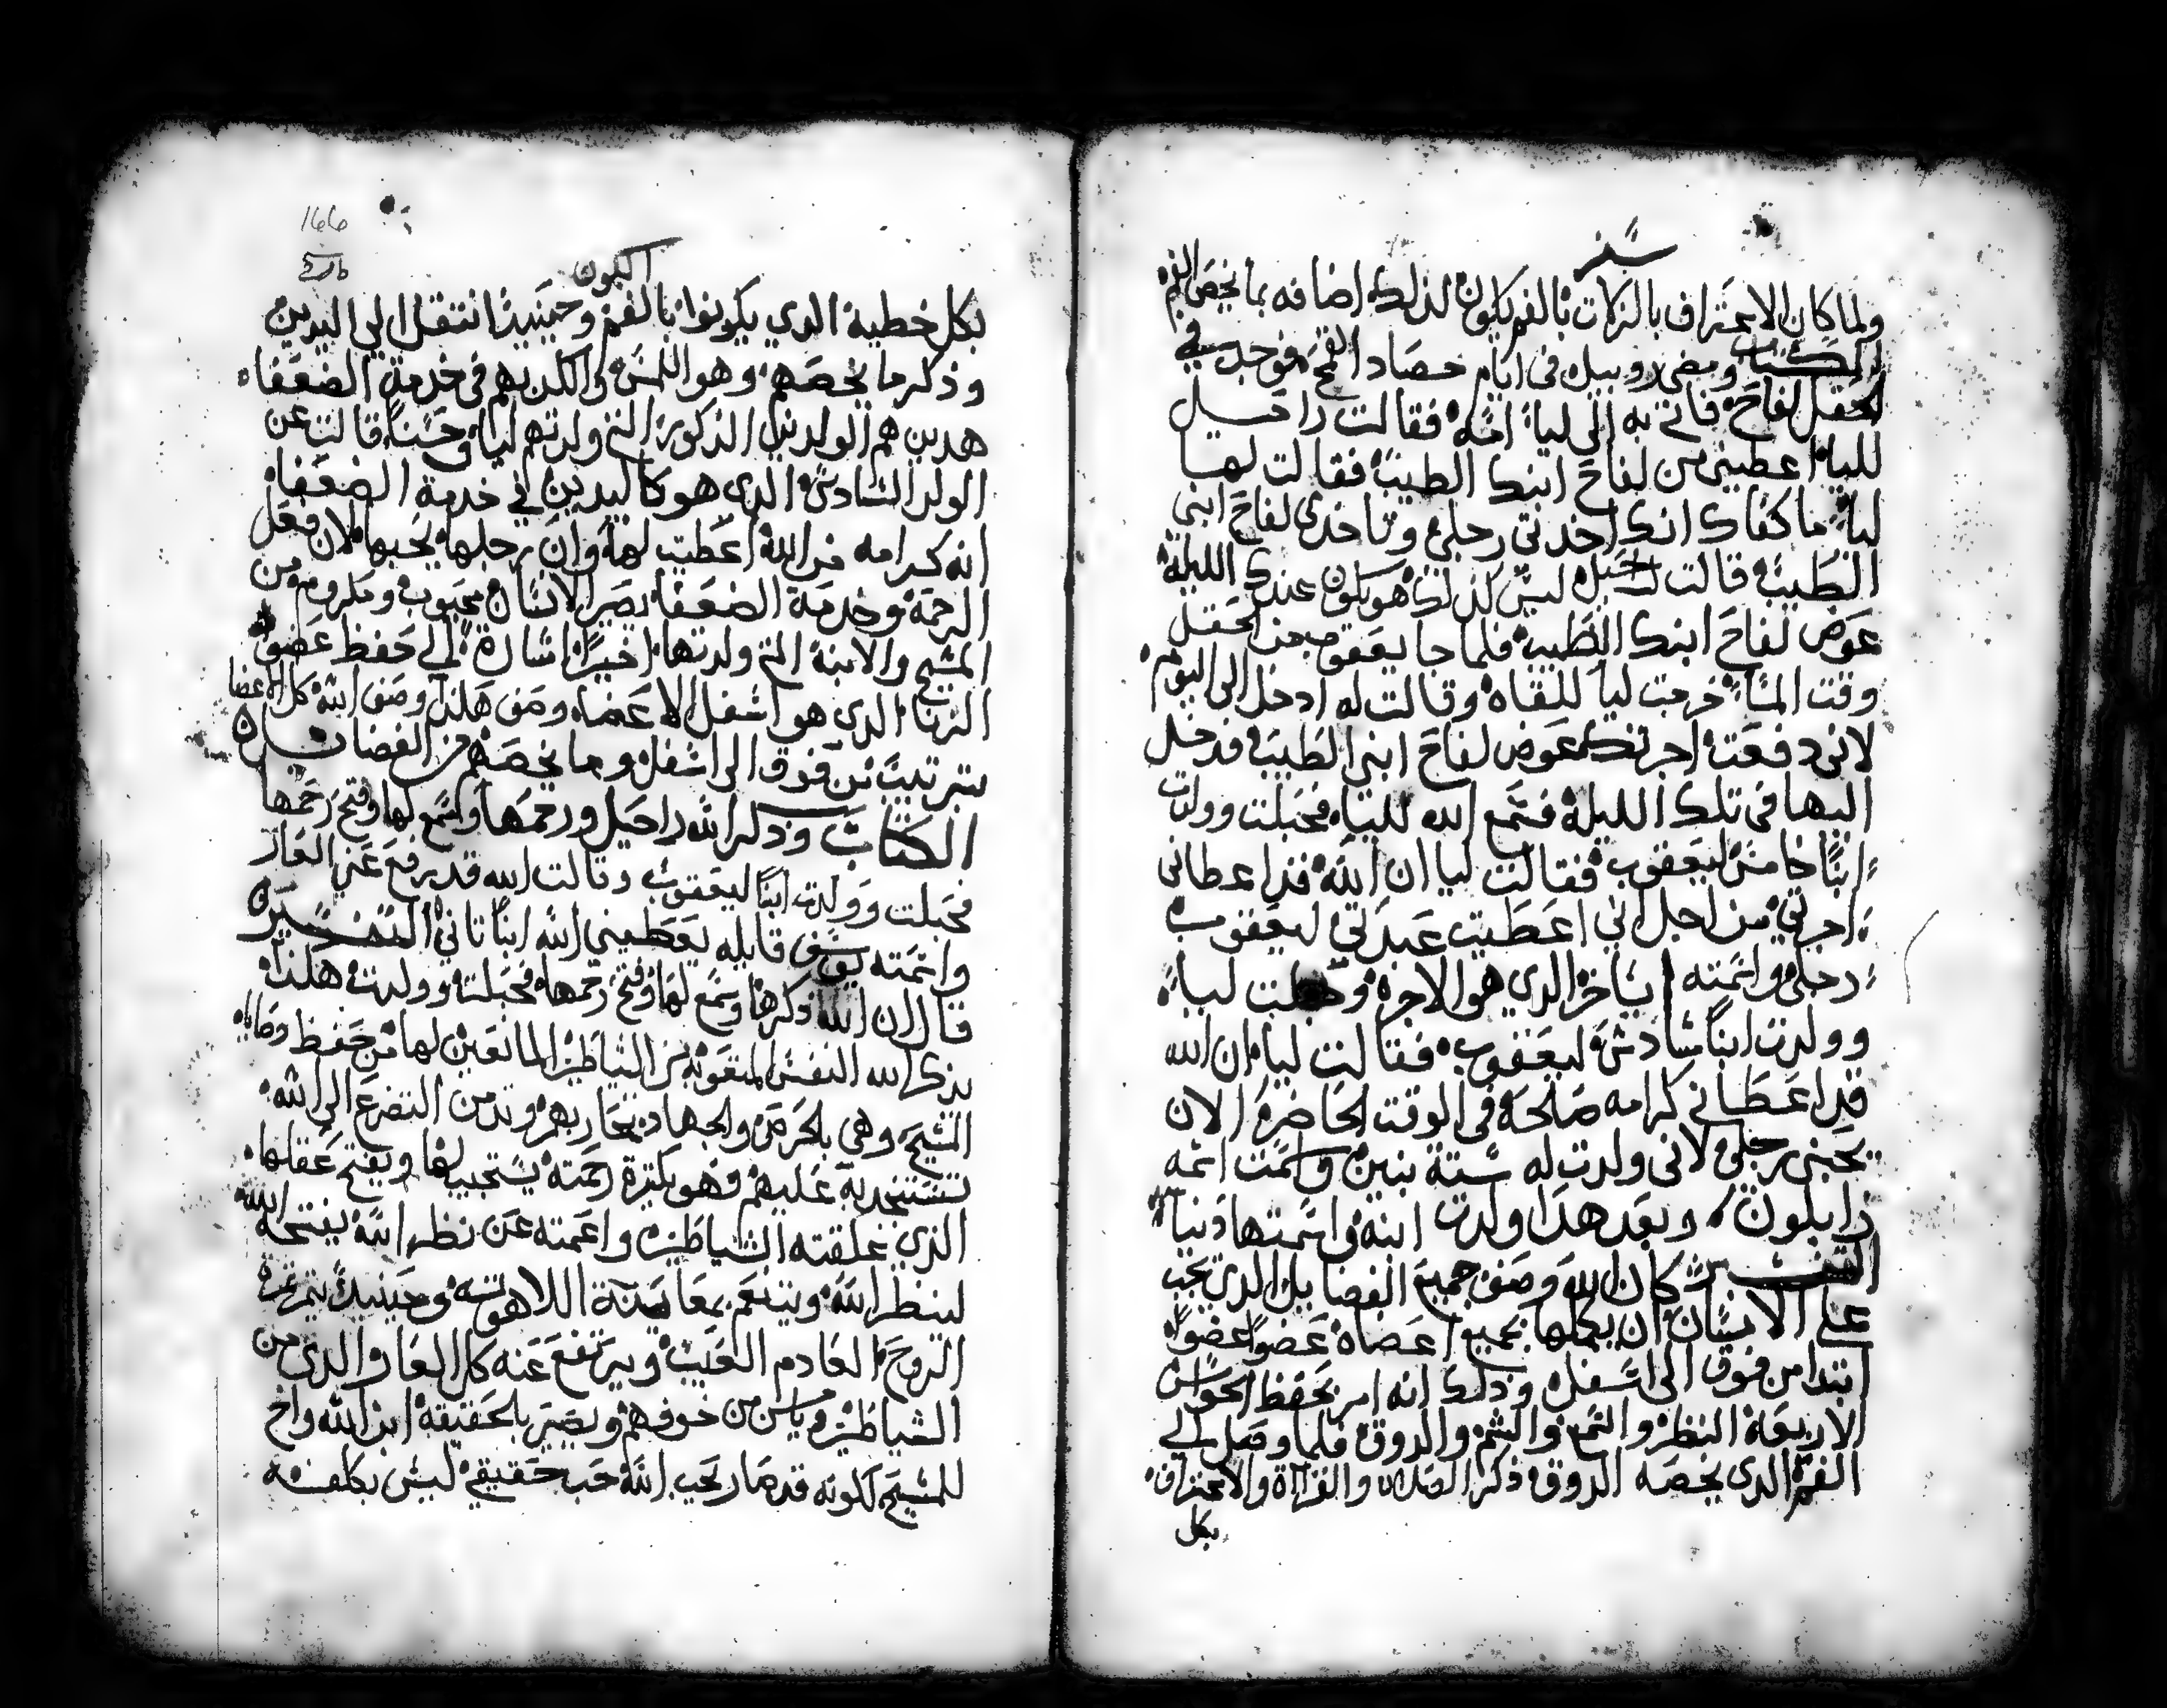 سفر
ولما كان الاعتراف بالزلات بالفم يكون لذلك اضافه بما يخص الفم
الكتاب ومضى روبيل فى ايام حصاد القمح فوجد في
الحقل لفاح فاتى به الى ليا امه فقالت راحيل
لليا اعطيني من لفاح ابنك الطيب فقالت لها
ليا ما كفاك انك اخدتي رجلي وتاخدى لفاح ابنى
الطيب قالت راحيل ليس كذلك هو يكون عندك الليلة
عوض لفاح ابنك الطيب فلما جا يعقوب من الحقل
وقت المسا خرجت ليا للقاه وقالت له ادخل الى اليوم
لانى دفعت اجرتك عوض لفاح ابنى الطيب فدخل
اليها فى تلك الليلة فسمع الله لليا فحبلت وولدت
ابنًا خامس ليعقوب فقالت ليا ان الله قد اعطانى
اجرتي من اجل اني اعطيت عبدتي ليعقوب
رجلى واسمته ايساخر الدي هو الاجرة وحبلت ليا
وولدت ابنًا سادس ليعقوب فقالت ليا ان الله
قد اعطاني كرامه صالحه فى الوقت الحاضر الان
يحبنى رجلي لانى ولدت له ستة بنين واسمت اسمه
زابلون وبعد هدا ولدت ابنة واسمتها دينا
التفسير كان الله وصف جميع الفضايل الدي يجب
على الانسان ان يعملها بجميع اعضاه عضوًا عضوًا
ابتدا من فوق الى اسفل ودلك انه امر بحفظ الحواس
الاربعة النظر والسمع والشم والدوق فلما وصل الي
الفم الدى يخصه الدوق ذكر الصلاه والقراة والاعتراف
بكل
166
التكوين
بكل خطية الدي يكونوا بالفم وحينيذ انتقل الي اليدين
وذكر ما يخصهم وهو اللمس والكد بهم فى خدمة الضعفا
هدين هم الولدين الدكورة التى ولدتهم ليا وحسنًا قالت عن
الولد السادس الدى هو كاليدين في خدمة الضعفا
انه كرامه من الله اعطيت لها وان رجلها يحبها لان فعل
الرحمة وخدمة الضعفا يصير الانسان محبوب ومكروم من
المسيح والابنة التى ولدتها اخيرًا اشارة الي حفظ عضو
الزنا الدى هو اسفل الاعضا ومن هكذا وصف الله كل الاعضا
بترتيب من فوق الى اسفل وما يخصهم من الفضايل
الكتاب ودكر الله راحيل ورحمها واسمع لها وفتح رحمها
فحبلت وولدت ابنًا ليعقوب وقالت الله قد رفع عني العار
واسمته يوسف قايله يعطيني الله ابنًا تاني التفسير
قال ان الله ذكرها وسمع لها وفتح رحمها فحبلت وولدت هكذا
يذكر الله النفس المتعوبة من الشياطين المانعين لها من حفظ وصايا
المسيح وهي بالحرص والجهاد تحاربهم وتدمن التضرع الى الله
تستنجد به عليهم فهو بكترة رحمته يستجيب لها ويفتح عقلها
الذي غلقته الشياطين واعمته عن نظر الله يفتحه الله
لينظر الله ويتنعم بمعاينة اللاهوته وحينيذ يتمر تمرة
الروح العادم العيب ويرتفع عنه كل العار الدى من
الشياطين وياس من خوفهم ويصير بالحقيقة ابن الله واخ
للمسيح لكونه قد صار يحب الله حب حقيقي ليس بكلفه